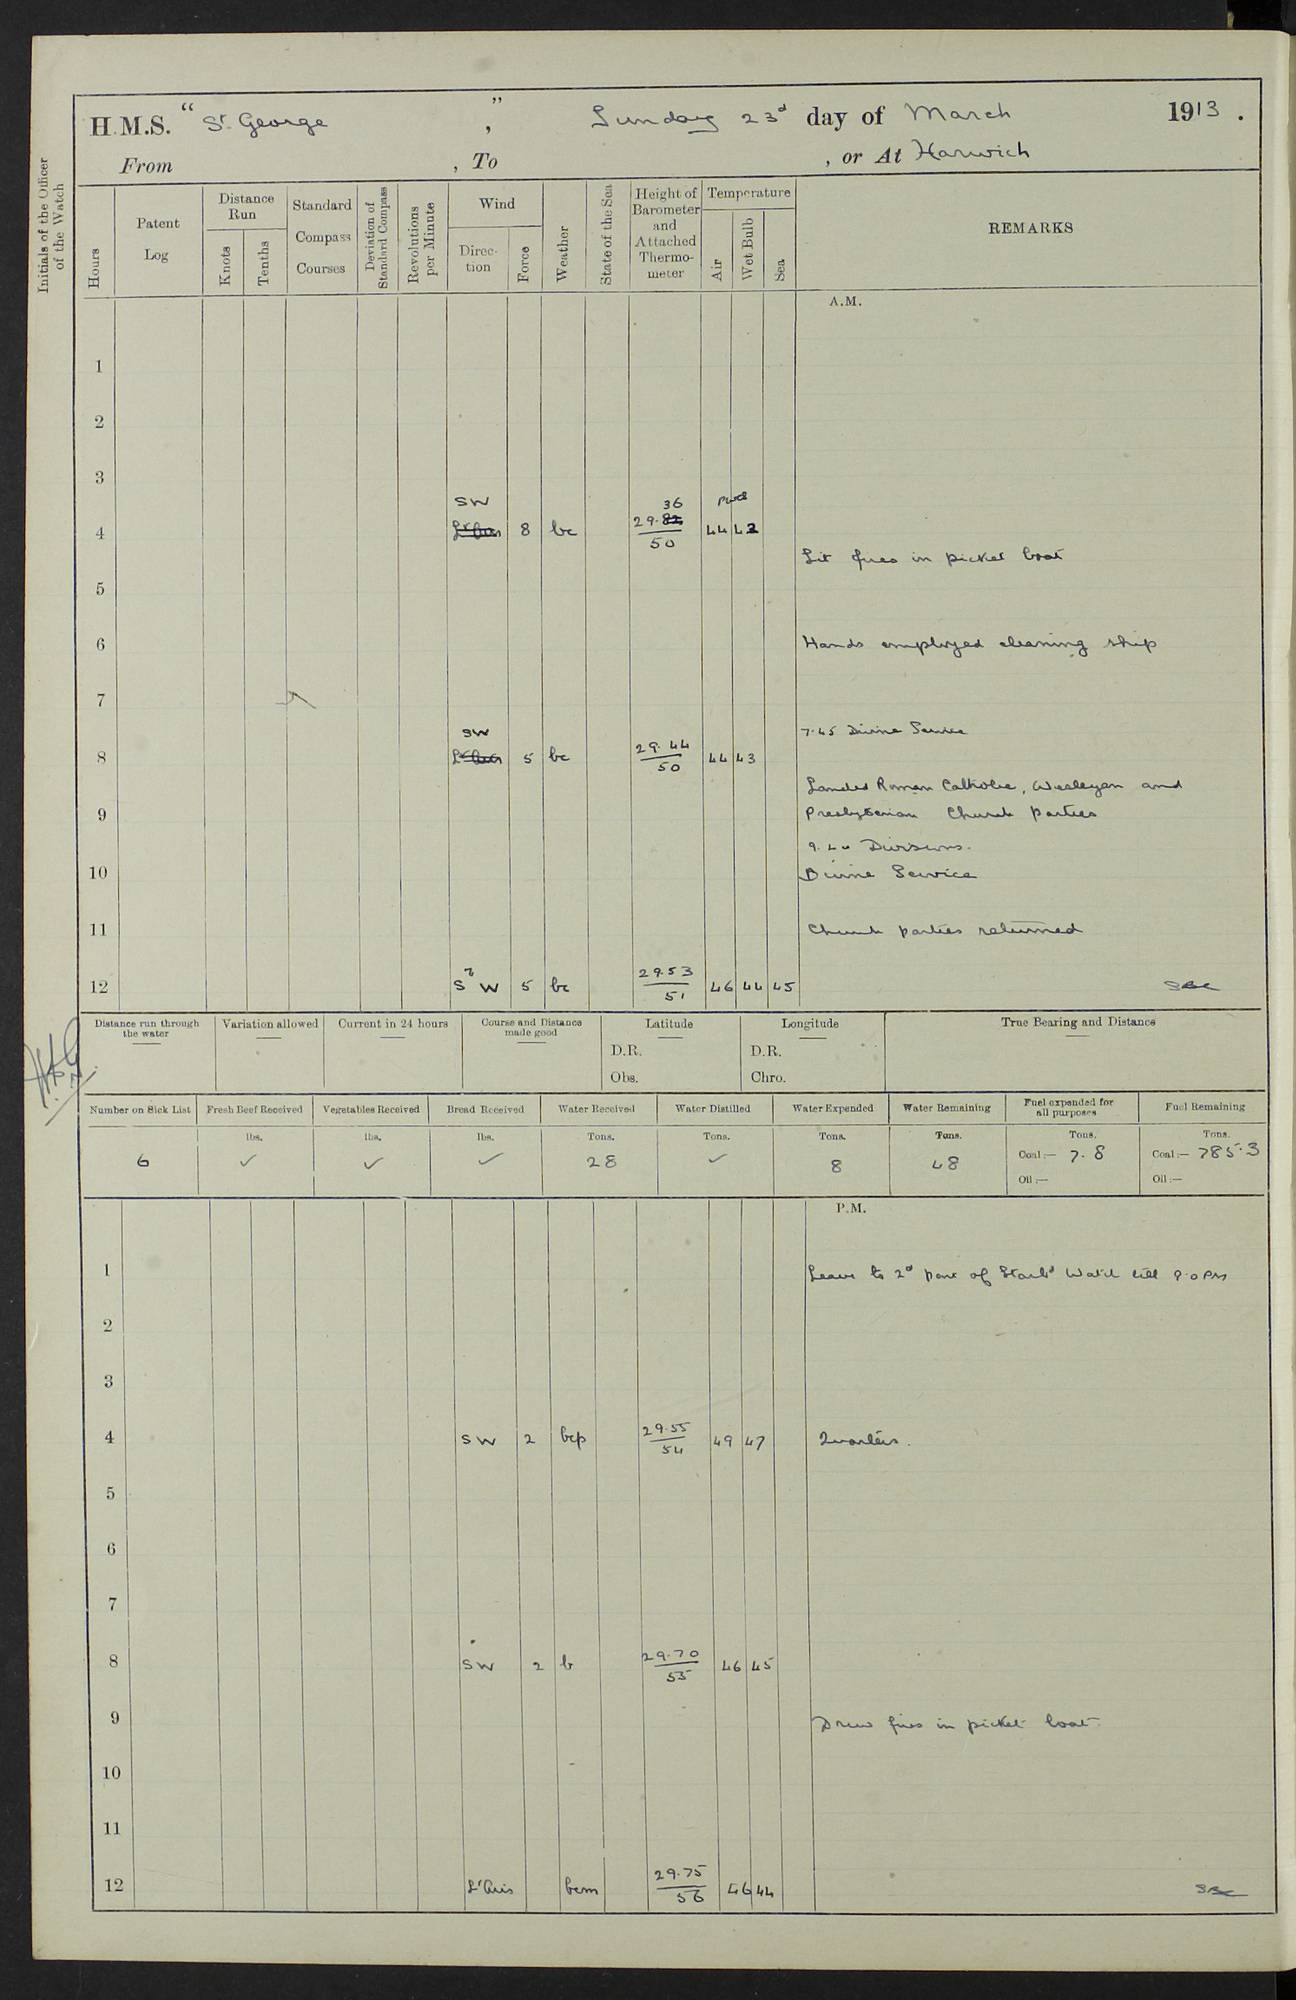 H.M.S. "St. George", Sunday 23d day of March 1913.
From , To , or At Harwich
Initials of the Officer of the Watch
Hours
Patent Log
Distance Run
Knots
Tenths
Standard Compass Courses
Deviation of Standard Compass
Revolutions per Minute
Wind
Direction
Force
Weather
State of the Sea
Height of Barometer and Attached Thermometer
Temperature
Air
Wet Bulb
Sea
REMARKS
A.M.
1
2
3
SW 36
4 Lt airs 8 bc 29.82 50 44 42
Lit fires in picket boat
5
6 Hands employed cleaning ship
7
SW 7.45 Divine Service
8 Lt airs 5 bc 29.44 50 44 43
Landed Roman Catholic, Wesleyan and
9 Presbyterian Church Parties
9.40 Divisions.
10 Divine Service
11 Church parties returned
12 S W 5 bc 29.53 51 46 44 45
Distance run through the water
Variation allowed
Current in 24 hours
Course and Distance made good
Latitude
D.R.
Obs.
Longitude
D.R.
Chro.
True Bearing and Distance
Number on Sick List
6
Fresh Beef Received
lbs. ✓
Vegetables Received
lbs. ✓
Bread Received
lbs. ✓
Water Received
Tons. 28
Water Distilled
Tons. ✓
Water Expended
Tons. 8
Water Remaining
Tons. 48
Fuel expended for all purposes
Tons.
Coal:— 7.8
Oil:—
Fuel Remaining
Tons.
Coal:— 785.3
Oil:—
P.M.
1 Leave to 2d part of Starbd Watch till 9.0 PM
2
3
4 SW 2 bcp 29.55 54 49 47 Quarters.
5
6
7
8 SW 2 b 29.70 55 46 45
9 Drew fires in picket boat.
10
11
12 Lt airs bcm 29.75 56 46 44